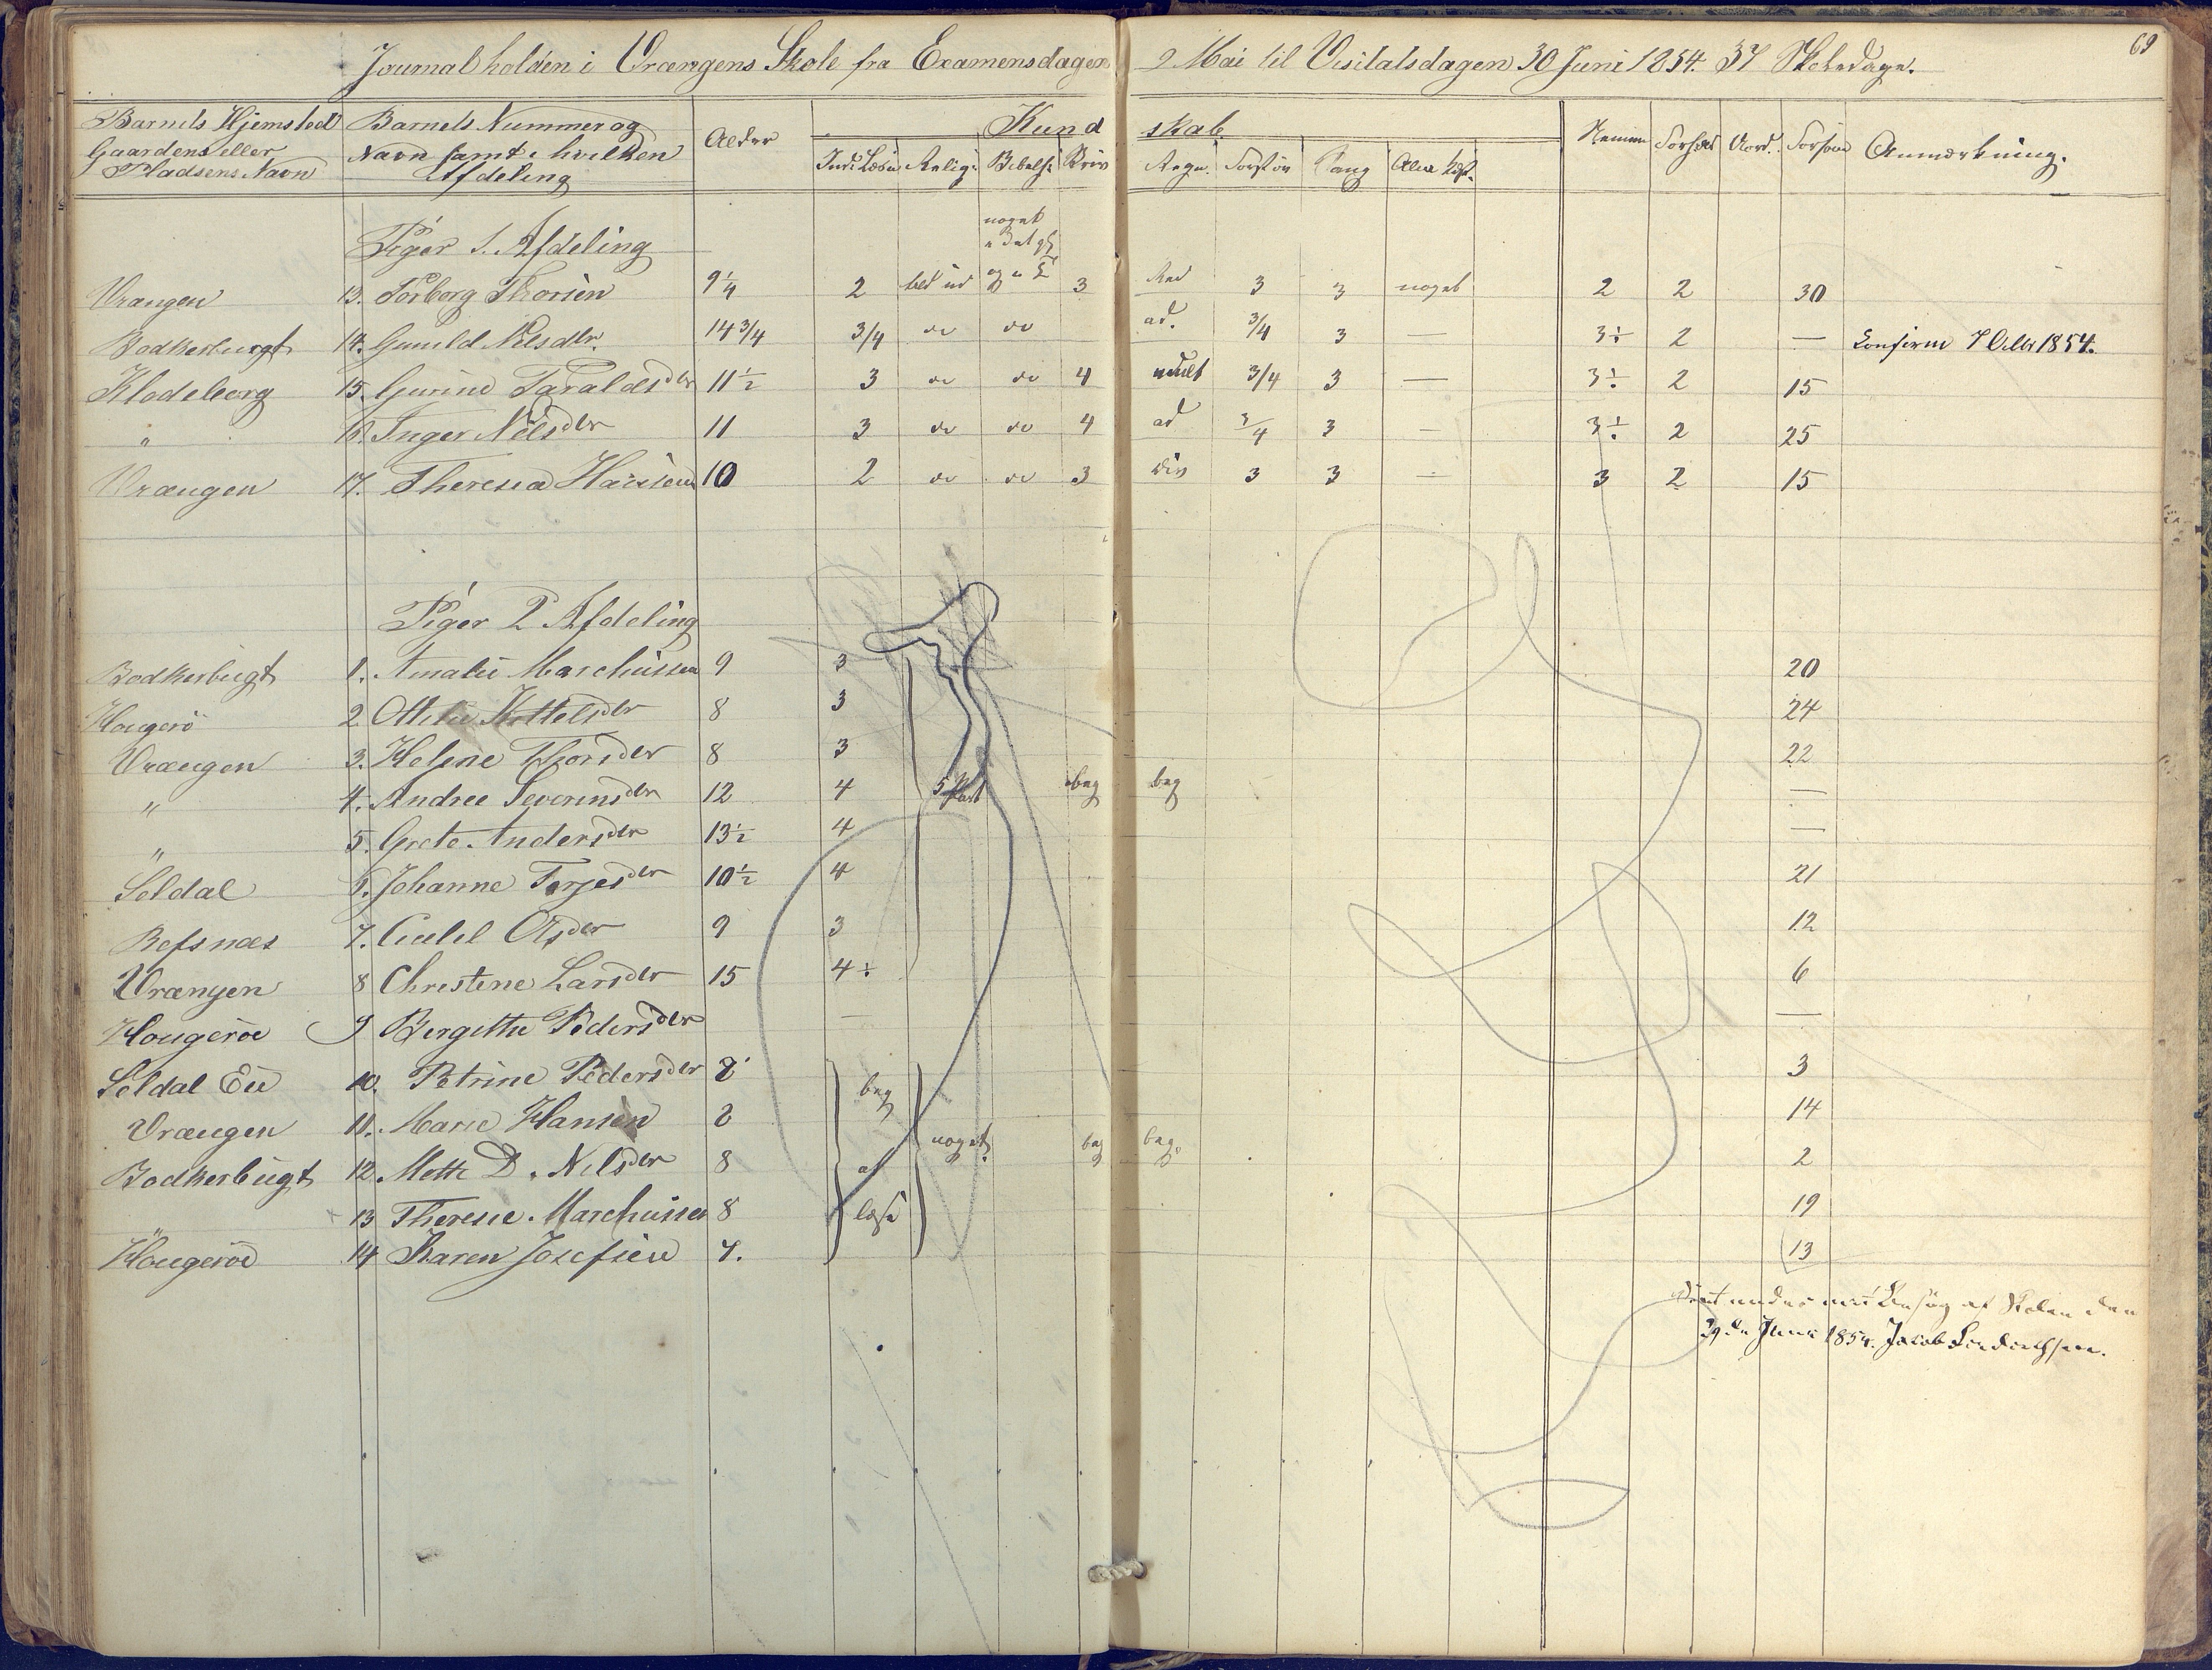 69
Journal holden i Vrængens Skole fra Examensdagen 2 Mai til Visitatsdagen 30 Juni 1854. 37 Skoledage.
Barnets Hjemsted Gaardens eller Pladsens Navn
Barnets Nummer og Navn samt i hvilken Afdeling
Alder
Kundskab
Religi: Bibelh: Skriv Regn. Sang
Nemme Forhold Vord. Forsøm Anmærkning.
Piger 1. Afdeling
noget
Vrængen 13. Torborg Thorsen 9 1/4 2 3 3 3 noget 2 2 30
Bodkerbugt 14. Gunild Nilsdtr. 14 3/4 3/4 do do ad. 3/4 3 — 3÷ 2 — Confirm 7 Octbr 1854.
Klodeborg 15. Gurine Taraldsdtr 11 1/2 3 do do 4 mult 3/4 3 — 3÷ 2 15
" 16. Inger Nilsdtr 11 3 do do 4 ad 3/4 3 — 3÷ 2 25
Vrængen 17. Theresia Hansen 10 2 do do 3 div 3 3 — 3 2 15
Piger 2 Afdeling
Bodkerbugt 1. Amalie Marchussen 9 3 20
Hougerö 2 Kittelsdtr 8 3 24
Vrængen 3. Helene Thorsdtr 8 3 22
" 4. Andree Severinsdtr 12 4 5 Part beg beg —
" 5. Grete Andersdtr 13 1/2 4 —
Soldal 6. Johanne Terjesdtr 10 1/2 4 21
Refsnæs 7. Olsdtr 9 3 12
Vrængen 8 Christine Larsdtr 15 4÷ 6
Hougeröe 9 Bergithe Pedersdtr — —
Soldal Eie 10. Petrine Pedersdtr 8 beg 3
Vrængen 11. Marie Hansen 8 noget beg beg. 14
Bodkerbugt 12. Mette D. Nilsdtr 8 at 2
" 13 Theresie Marchussen 8 læse 19
Hougeröe 14 Karen Josefine 7. 13
under mit Besøg af Skolen den
29de Juni 1854. Jacob